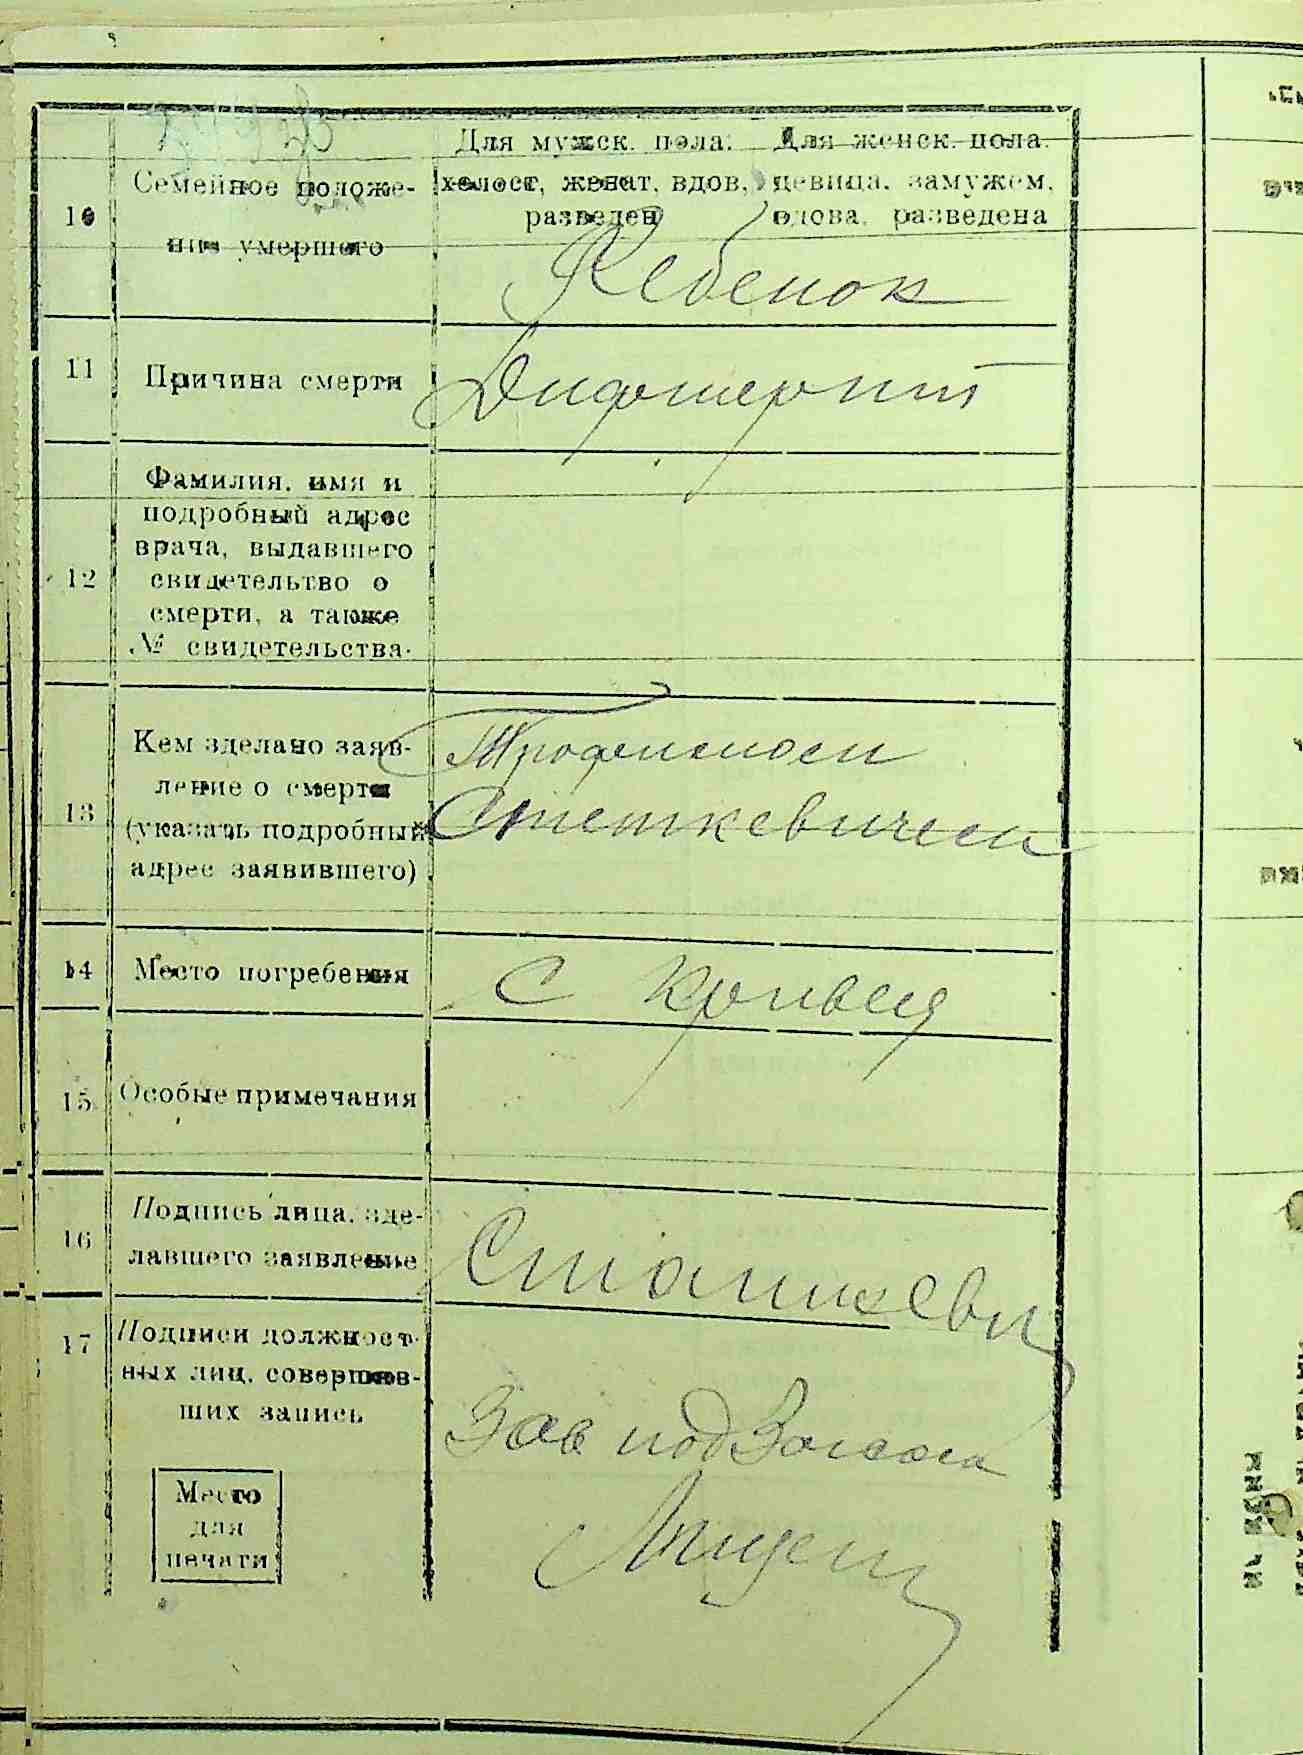 Для мужск. пола: Для женск. пола.
10 Семейное положе- холост, женат, вдов, девица, замужем,
разведен вдова, разведена
ние умершего
Ребенок
11 Причина смерти Дифтерит
Фамилия, имя и
подробный адрес
врача, выдавшего
12 свидетельтво о
смерти, а также
№ свидетельства.
Кем зделано заяв- Трофимом
ление о смерти
13 (указать подробный Стеткевичем
адрес заявившего)
14 Место погребения С
15 Особые примечания
Подпись лица, зде-
16 лавшего заявление
17 Подписи должност-
ных лиц, совершив-
ших запись
Зав под Загсом
Место
для
печати